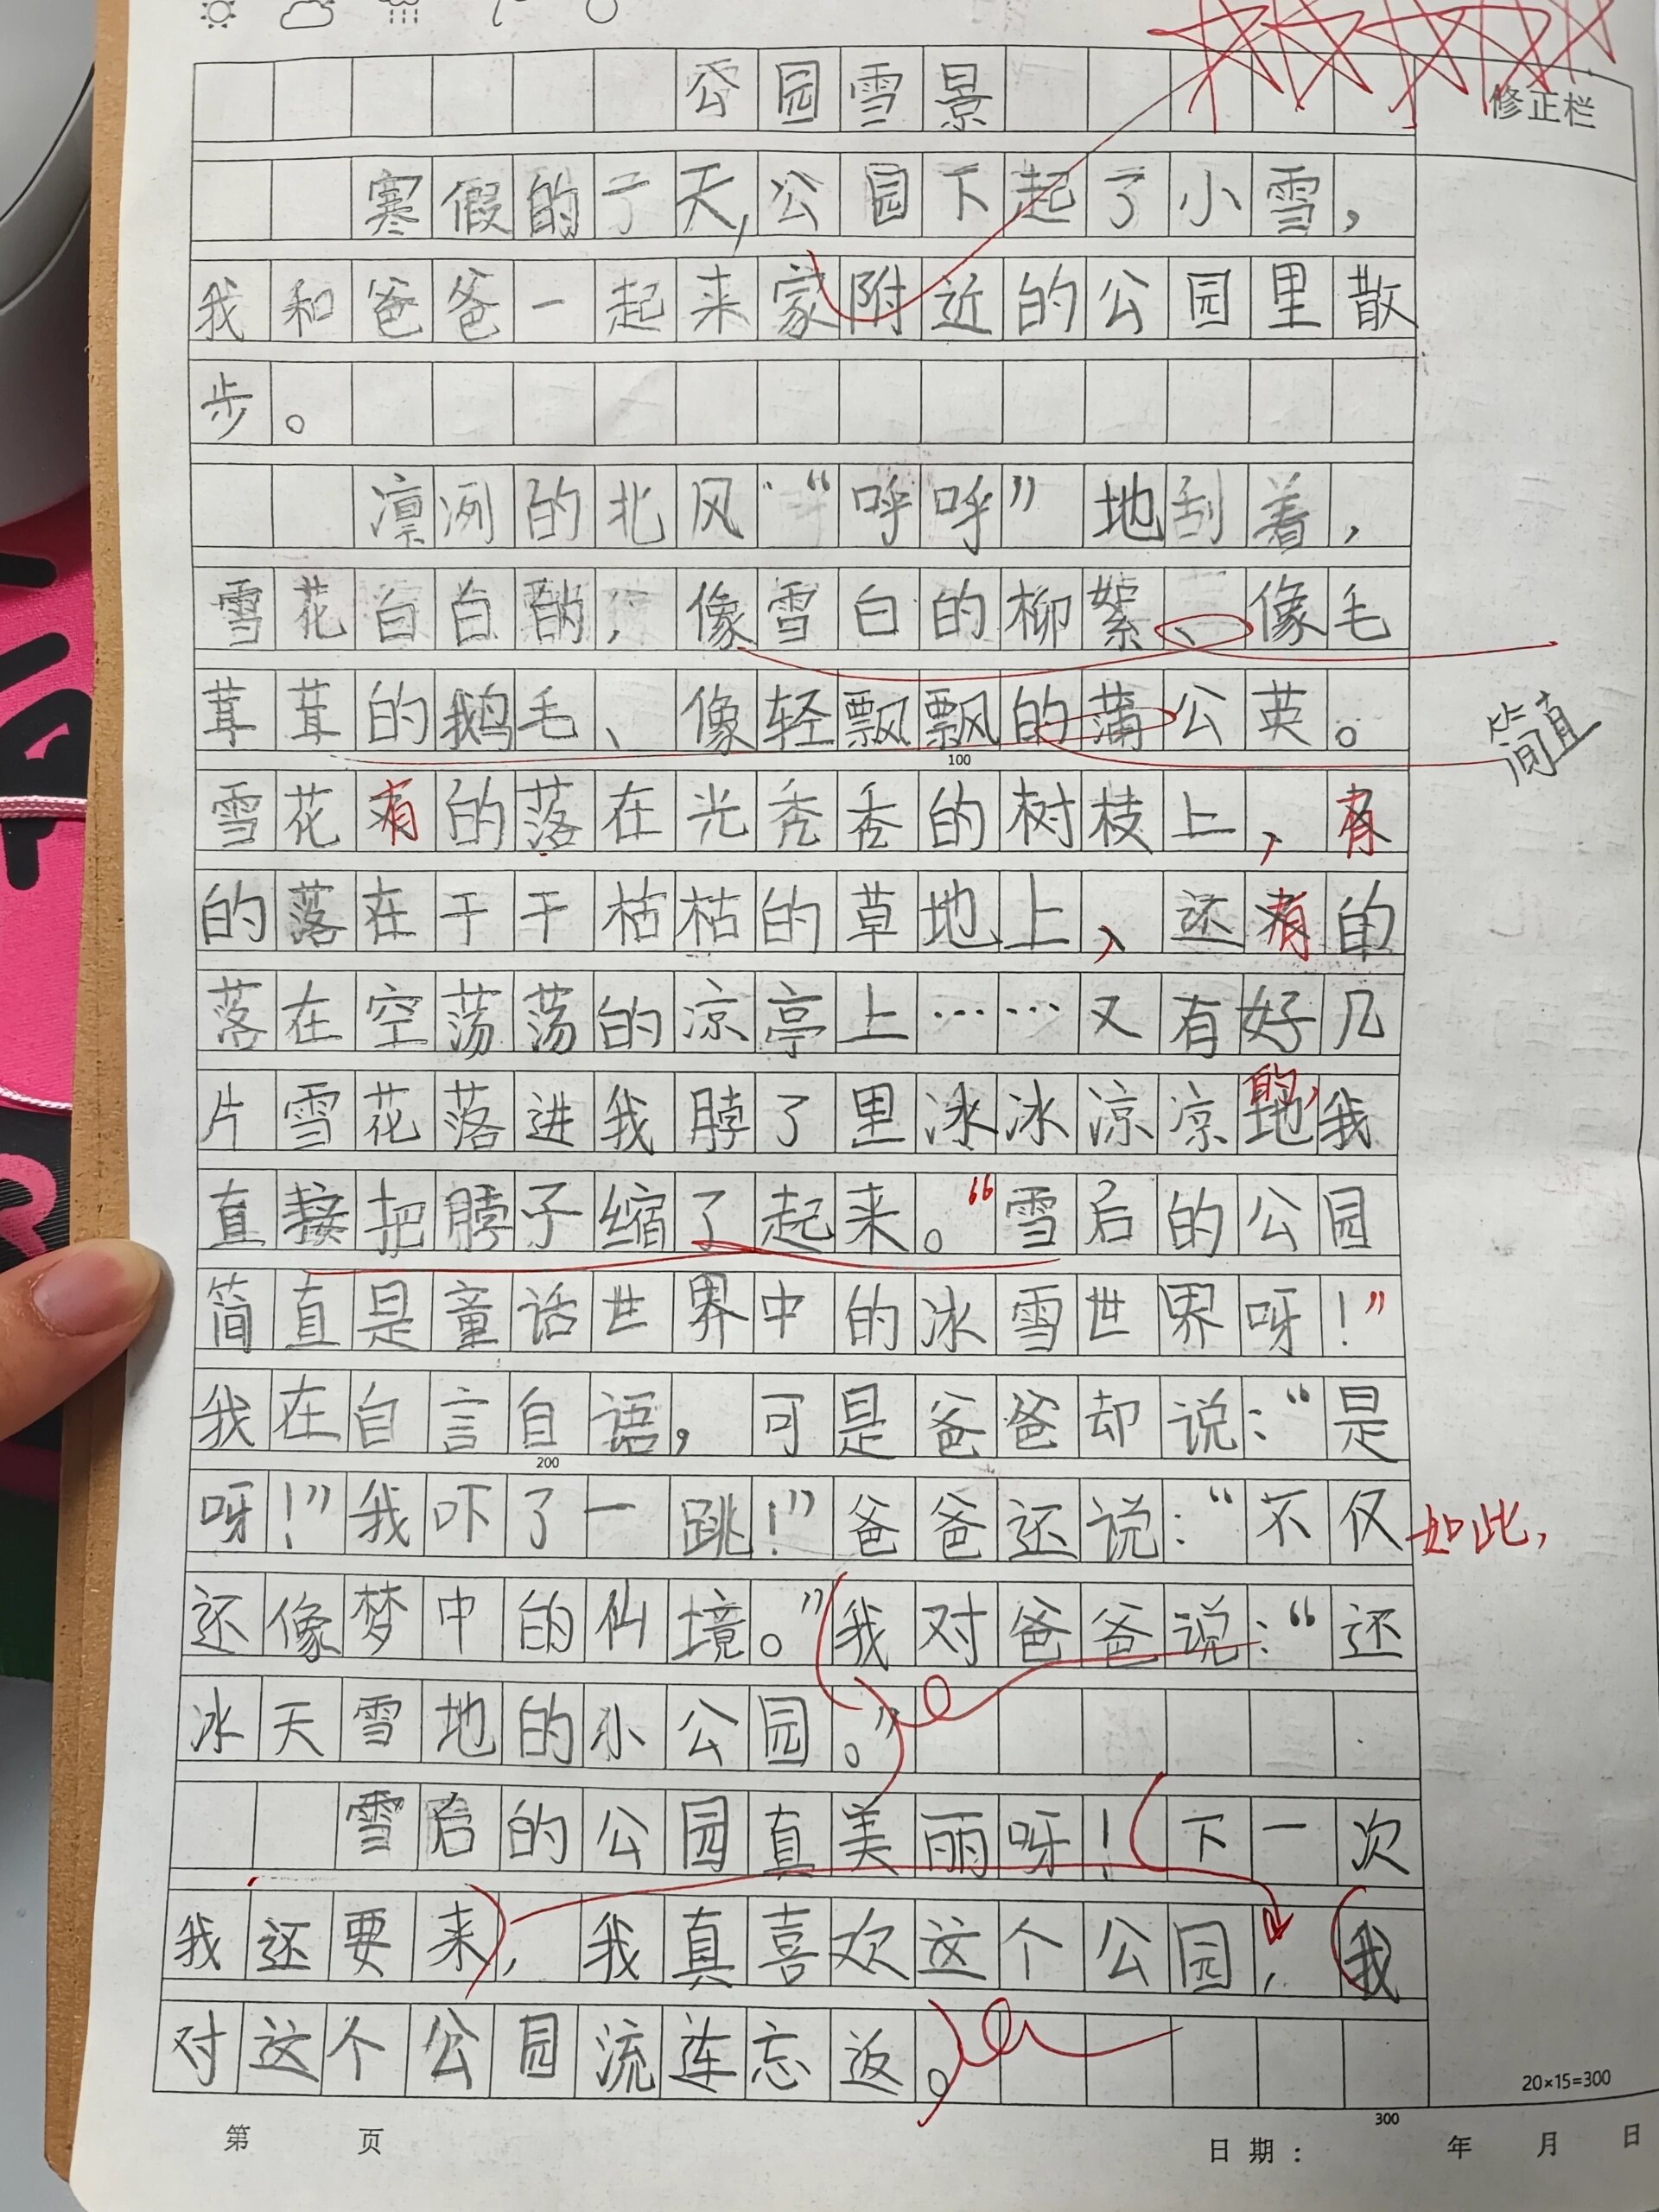 公园雪景
修正栏
寒假的一天,公园下起了小雪,
我和爸爸一起来家附近的公园里散
步。
凛冽的北风“呼呼”地刮着,
雪花白白的,像雪白的柳絮、像毛
茸茸的鹅毛、像轻飘飘的蒲公英。
简直
100
雪花有的落在光秃秃的树枝上,有
的落在干干枯枯的草地上,还有的
落在空荡荡的凉亭上……又有好几
的,
片雪花落进我脖了里冰冰凉凉地我
直接把脖子缩了起来。“雪后的公园
简直是童话世界中的冰雪世界呀!”
我在自言自语,可是爸爸却说:“是
200
呀!”我吓了一跳!”爸爸还说:“不仅如此,
还像梦中的仙境。”我对爸爸说:“还
冰天雪地的小公园。”
雪后的公园真美丽呀!下一次
我还要来,我真喜欢这个公园,我
对这个公园流连忘返。
20×15=300
300
第 页 日期: 年 月 日